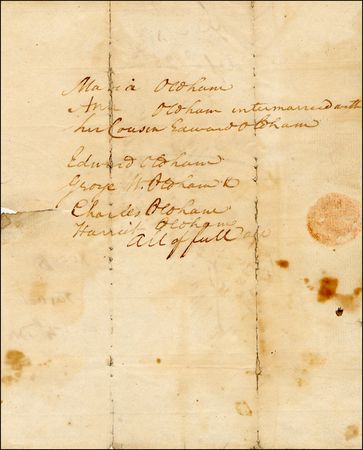 Maria Oldham
Ann Oldham intermarried with
her Cousin Edward Oldham
Edward Oldham
George W. Oldham
Charles Oldham
Harriet Oldham
All of full age